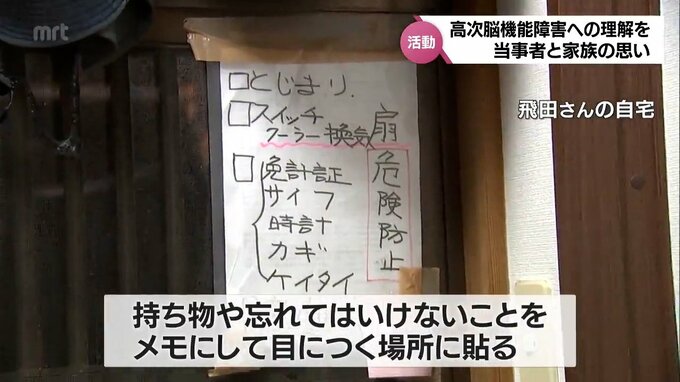 mrt
活動
高次脳機能障害への理解を
当事者と家族の思い
飛田さんの自宅
とじまり.
スイッチ
クーラー換気扇
免計証
サイフ
時計
カギ
ケイタイ
危険防止
持ち物や忘れてはいけないことを
メモにして目につく場所に貼る